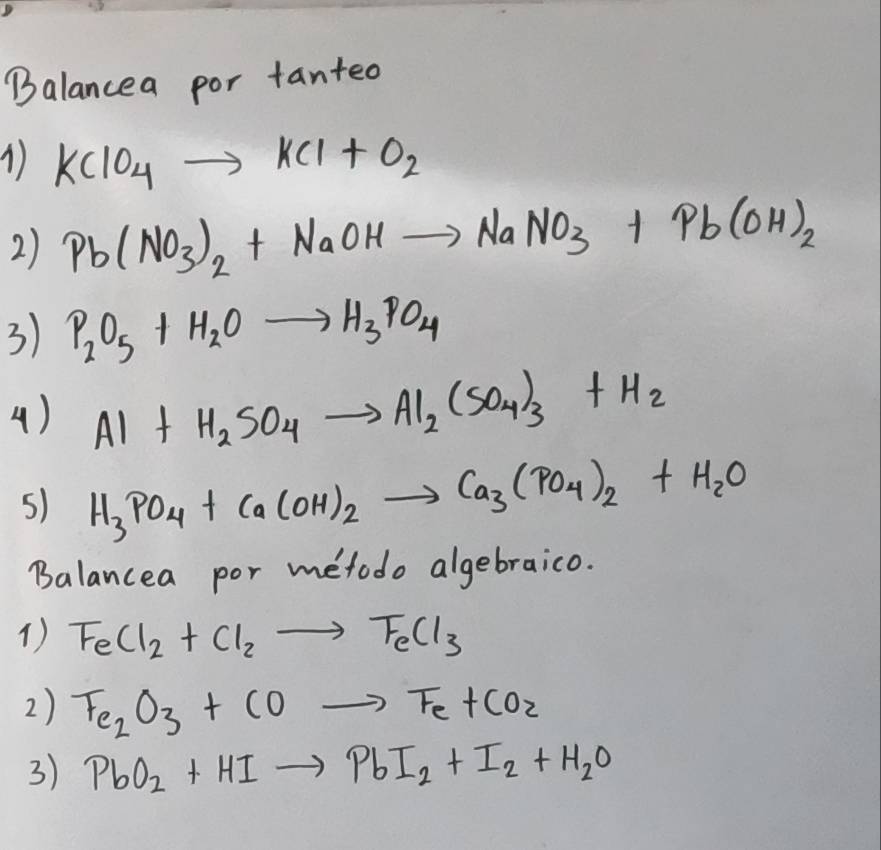 Balancea por tanteo
1) KClO₄ → KCl + O₂
2) Pb(NO₃)₂ + NaOH → NaNO₃ + Pb(OH)₂
3) P₂O₅ + H₂O → H₃PO₄
4) Al + H₂SO₄ → Al₂(SO₄)₃ + H₂
5) H₃PO₄ + Ca(OH)₂ → Ca₃(PO₄)₂ + H₂O
Balancea por método algebraico.
1) FeCl₂ + Cl₂ → FeCl₃
2) Fe₂O₃ + CO → Fe + CO₂
3) PbO₂ + HI → PbI₂ + I₂ + H₂O